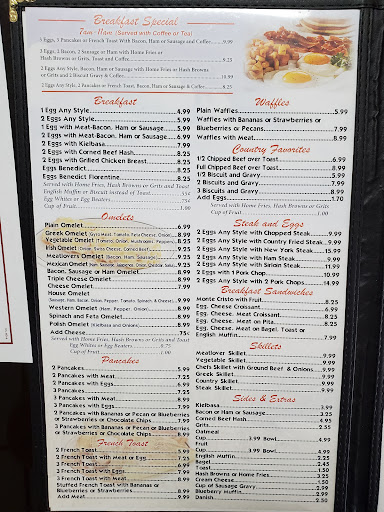 Breakfast Special
7am - 11am (Served with Coffee or Tea)
2 Eggs, 2 Bacon, 2 Sausage or Ham with Home Fries or
Hash Browns or Grits, Toast and Coffee 9.25
2 Eggs Any Style, Bacon, Sausage or Ham with Hash Browns
or Grits and 2 Biscuit Gravy & Coffee
Breakfast
1 Egg Any Style 4.99
2 Eggs Any Style 5.99
1 Egg with Meat-Bacon, Ham or Sausage 5.99
2 Eggs with Meat-Bacon, Ham or Sausage 6.99
2 Eggs with Kielbasa 7.99
2 Eggs with Corned Beef Hash 8.25
2 Eggs with Grilled Chicken Breast 8.25
Eggs Benedict 7.55
Eggs Benedict Florentine 8.25
Served with Home Fries, Hash Browns or Grits and Toast
English Muffin or Biscuit instead of Toast
Egg Whites or Egg Beaters
Cup of Fruit
Omelets
Plain Omelet 6.99
Greek Omelet (Gyro Meat, Tomato, Feta Cheese, Onion) 8.99
Vegetable Omelet (Tomato, Onion, Mushrooms, Peppers) 8.25
Meatlovers Omelet (Bacon, Ham, Sausage)
Mexican Omelet
Bacon, Sausage or Ham Omelet 8.25
Triple Cheese Omelet 8.25
Cheese Omelet 7.99
House Omelet
(Sausage, Ham, Bacon, Onion, Pepper, Tomato, Spinach & Cheese) 9.99
Western Omelet (Ham, Pepper, Onion) 8.99
Spinach and Feta Omelet 8.99
Polish Omelet (Kielbasa and Onions) 8.99
Add Cheese
Served with Home Fries, Hash Browns or Grits and Toast
Egg Whites or Egg Beaters
Cup of Fruit
Pancakes
2 Pancakes 5.99
2 Pancakes with Meat 7.25
2 Pancakes with Eggs 6.99
3 Pancakes 6.55
3 Pancakes with Meat 8.25
3 Pancakes with Eggs 7.99
2 Pancakes with Bananas or Pecan or Blueberries
or Strawberries or Chocolate Chips 7.99
3 Pancakes with Bananas or Pecan or Blueberries
or Strawberries or Chocolate Chips
French Toast
2 French Toast 5.99
2 French Toast with Meat or Egg 7.25
3 French Toast 6.99
3 French Toast with Eggs 7.99
3 French Toast with Meat 8.99
Stuffed French Toast with Bananas or
Blueberries or Strawberries 8.99
Add Meat 2.99
Waffles
Plain Waffles 5.99
Waffles with Bananas or Strawberries or
Blueberries or Pecans 7.99
Waffles with Meat 8.99
Country Favorites
1/2 Chipped Beef over Toast 6.99
Full Chipped Beef over Toast 8.99
1/2 Biscuit and Gravy 5.99
2 Biscuit and Gravy 7.99
3 Biscuits and Gravy 8.99
Add Eggs 1.70
Served with Home Fries, Hash Browns or Grits
Cup of Fruit
Steak and Eggs
2 Eggs Any Style with Chopped Steak 9.99
2 Eggs Any Style with Country Fried Steak 9.99
2 Eggs Any Style with New York Steak 15.99
2 Eggs Any Style with Ham Steak 9.99
2 Eggs Any Style with Sirloin Steak 11.99
2 Eggs with 1 Pork Chop 10.99
2 Eggs Any Style with 2 Pork Chops 14.99
Breakfast Sandwiches
Monte Cristo with Fruit 8.25
Egg, Cheese Croissant 6.99
Egg, Cheese, Meat Croissant 8.25
Egg, Cheese, Meat on Pita 8.25
Egg, Cheese, Meat on Bagel, Toast or
English Muffin 7.99
Skillets
Meatlover Skillet 9.99
Vegetable Skillet 9.99
Chefs Skillet with Ground Beef & Onions 9.99
Greek Skillet 9.99
Country Skillet 9.99
Steak Skillet 9.99
Sides & Extras
Kielbasa 3.99
Bacon or Ham or Sausage 3.25
Corned Beef Hash 4.95
Grits 2.55
Oatmeal
Cup 3.99 Bowl 4.99
Fruit
Cup 3.99 Bowl 4.99
English Muffin 2.25
Bagel 2.45
Toast 1.50
Hash Browns or Home Fries 3.25
Cream Cheese 1.50
Cup of Sausage Gravy 2.99
Blueberry Muffin 2.99
Danish 2.50